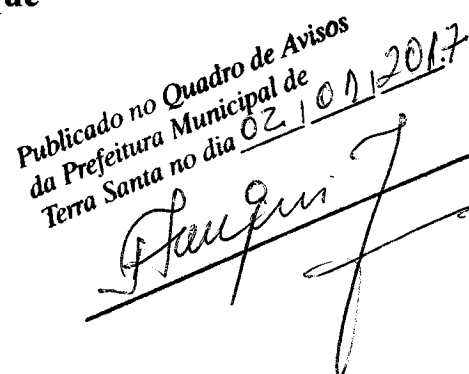 Publicado no Quadro de Avisos
da Prefeitura Municipal de
Terra Santa no dia 02/01/2017